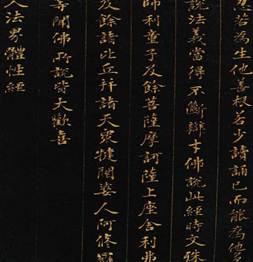 若為生他善根若少讀誦已而能為他
說法義當得不斷辯才佛說此經時文殊
師利童子及餘菩薩摩訶薩上座舍利弗
及餘諸比丘并諸天衆揵闥婆人阿修羅
等聞佛所說皆大歡喜
入法界體性經